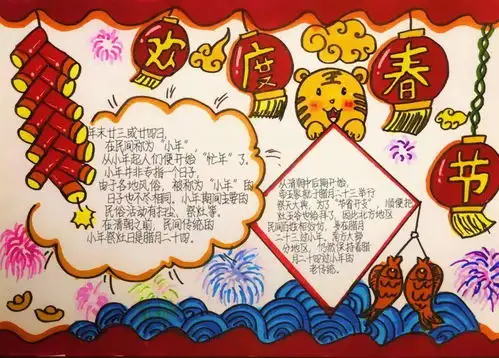 欢度春节
年末廿三或廿四日,
在民间称为“小年”
从小年起人们便开始“忙年”了。
小年并非专指一个日子,
由于各地风俗,被称为“小年”的
日子也不尽相同。小年期间主要的
民俗活动有扫尘、祭灶等。
在清朝之前,民间传统的
小年祭灶日是腊月二十四。
从清朝中后期开始,
帝王家就于腊月二十三举行
祭天大典,为了“节省开支”,顺便把
灶王爷也给拜了,因此北方地区
民间百姓相效仿,多在腊月
二十三过小年。南方大部
分地区,仍然保持着腊
月二十四过小年的
老传统。